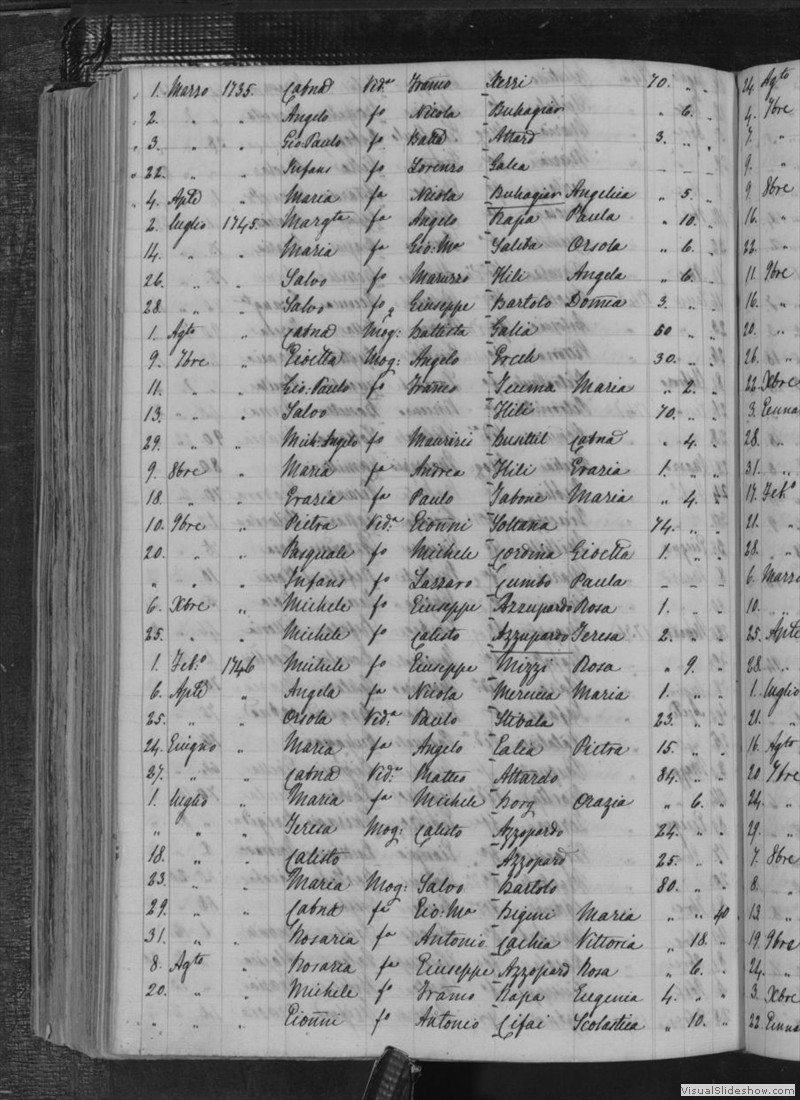 1. Marzo 1735. Cabnā Vid.ª Framo Xerri 70. „ „
2. „ „ Angelo fo Nicola Buhagiar „ 6. „
3. „ „ Gio:Paulo fo Batta Attard 3. „ „
22. „ „ Infans fo Lorenzo Galea – – –
4. Aple „ Maria fa Nicola Buhagiar Angelica „ 5. „
2. luglio 1745. Margta fa Angelo Rapa Paula „ 10. „
14. „ „ Maria fa Gio:Ma Saliba Orsola „ 6. „
26. „ „ Salvo fo Maruzzo Hili Angela „ 6. „
28. „ „ Salvo fo Giuseppe Bartolo Domca 3. „ „
1. Agto „ Cabnā Mog: Battista Galea 60 „ „
9. 7bre „ Gioetta Mog: Angelo Grech 30. „ „
11. „ „ Gio:Paulo fo Framo Teuma Maria „ 2. „
13. „ „ Salvo Hili 70. „ „
29. „ „ Mich:Angelo fo Maurizi Busuttil Cabnā „ 4. „
9. 8bre „ Maria fa Andrea Hili Grazia 1. „ „
18. „ „ Grazia fa Paulo Tabone Maria „ 4. „
10. 9bre „ Pietra Vid.ª Gionni Soltana 74. „ „
20. „ „ Pasquale fo Michele Cordina Gioetta 1. „ „
„ „ „ Infans fo Lazzaro Cumbo Paula – – –
6. Xbre „ Michele fo Giuseppe Azzupardo Rosa 1. „ „
25. „ „ Michele fo Calisto Azzupardo Teresa 2. „ „
1. Feb.º 1746 Michele fo Giuseppe Mizzi Rosa „ 9. „
6. Aple „ Angela fa Nicola Mercieca Maria 1. „ „
25. „ „ Orsola Vid.ª Paulo Stivala 23. „ „
24. Giugno „ Maria fa Angelo Galea Pietra 15. „ „
27. „ „ Cabnā Vid.ª Matteo Attardo 84. „ „
1. luglio „ Maria fa Michele Borg Orazia „ 6. „
„ „ „ Teresa Mog: Calisto Azzopardo 24. „ „
18. „ „ Calisto Azzopard 25. „ „
23. „ „ Maria Mog: Salvo Bartolo 80. „ „
29. „ „ Cabnā fa Gio:Ma Bigeni Maria „ „ 40
31. „ „ Rosaria fa Antonio Cachia Vittoria „ 18. „
8. Agto „ Rosaria fa Giuseppe Azzopard Rosa „ 6. „
20. „ „ Michele fo Framo Rapa Eugenia 4. „ „
„ „ „ Gionni fo Antonio Cifai Scolastica „ 10. „
24. Agto
4. 7bre
7. „
9. „
9. 8bre
16. „
22. „
11. 9bre
16. „
20. „
26. „
22. Xbre
3. Genna
28. „
31. „
17. Feb.º
21. „
28. „
6. Marzo
10. „
25. Aple
28. „
1. luglio
21. „
16. Agto
20 7bre
24. „
29. „
7. 8bre
8. „
13. „
19. 9bre
24. „
3. Xbre
22. Genna
VisualSlideshow.com